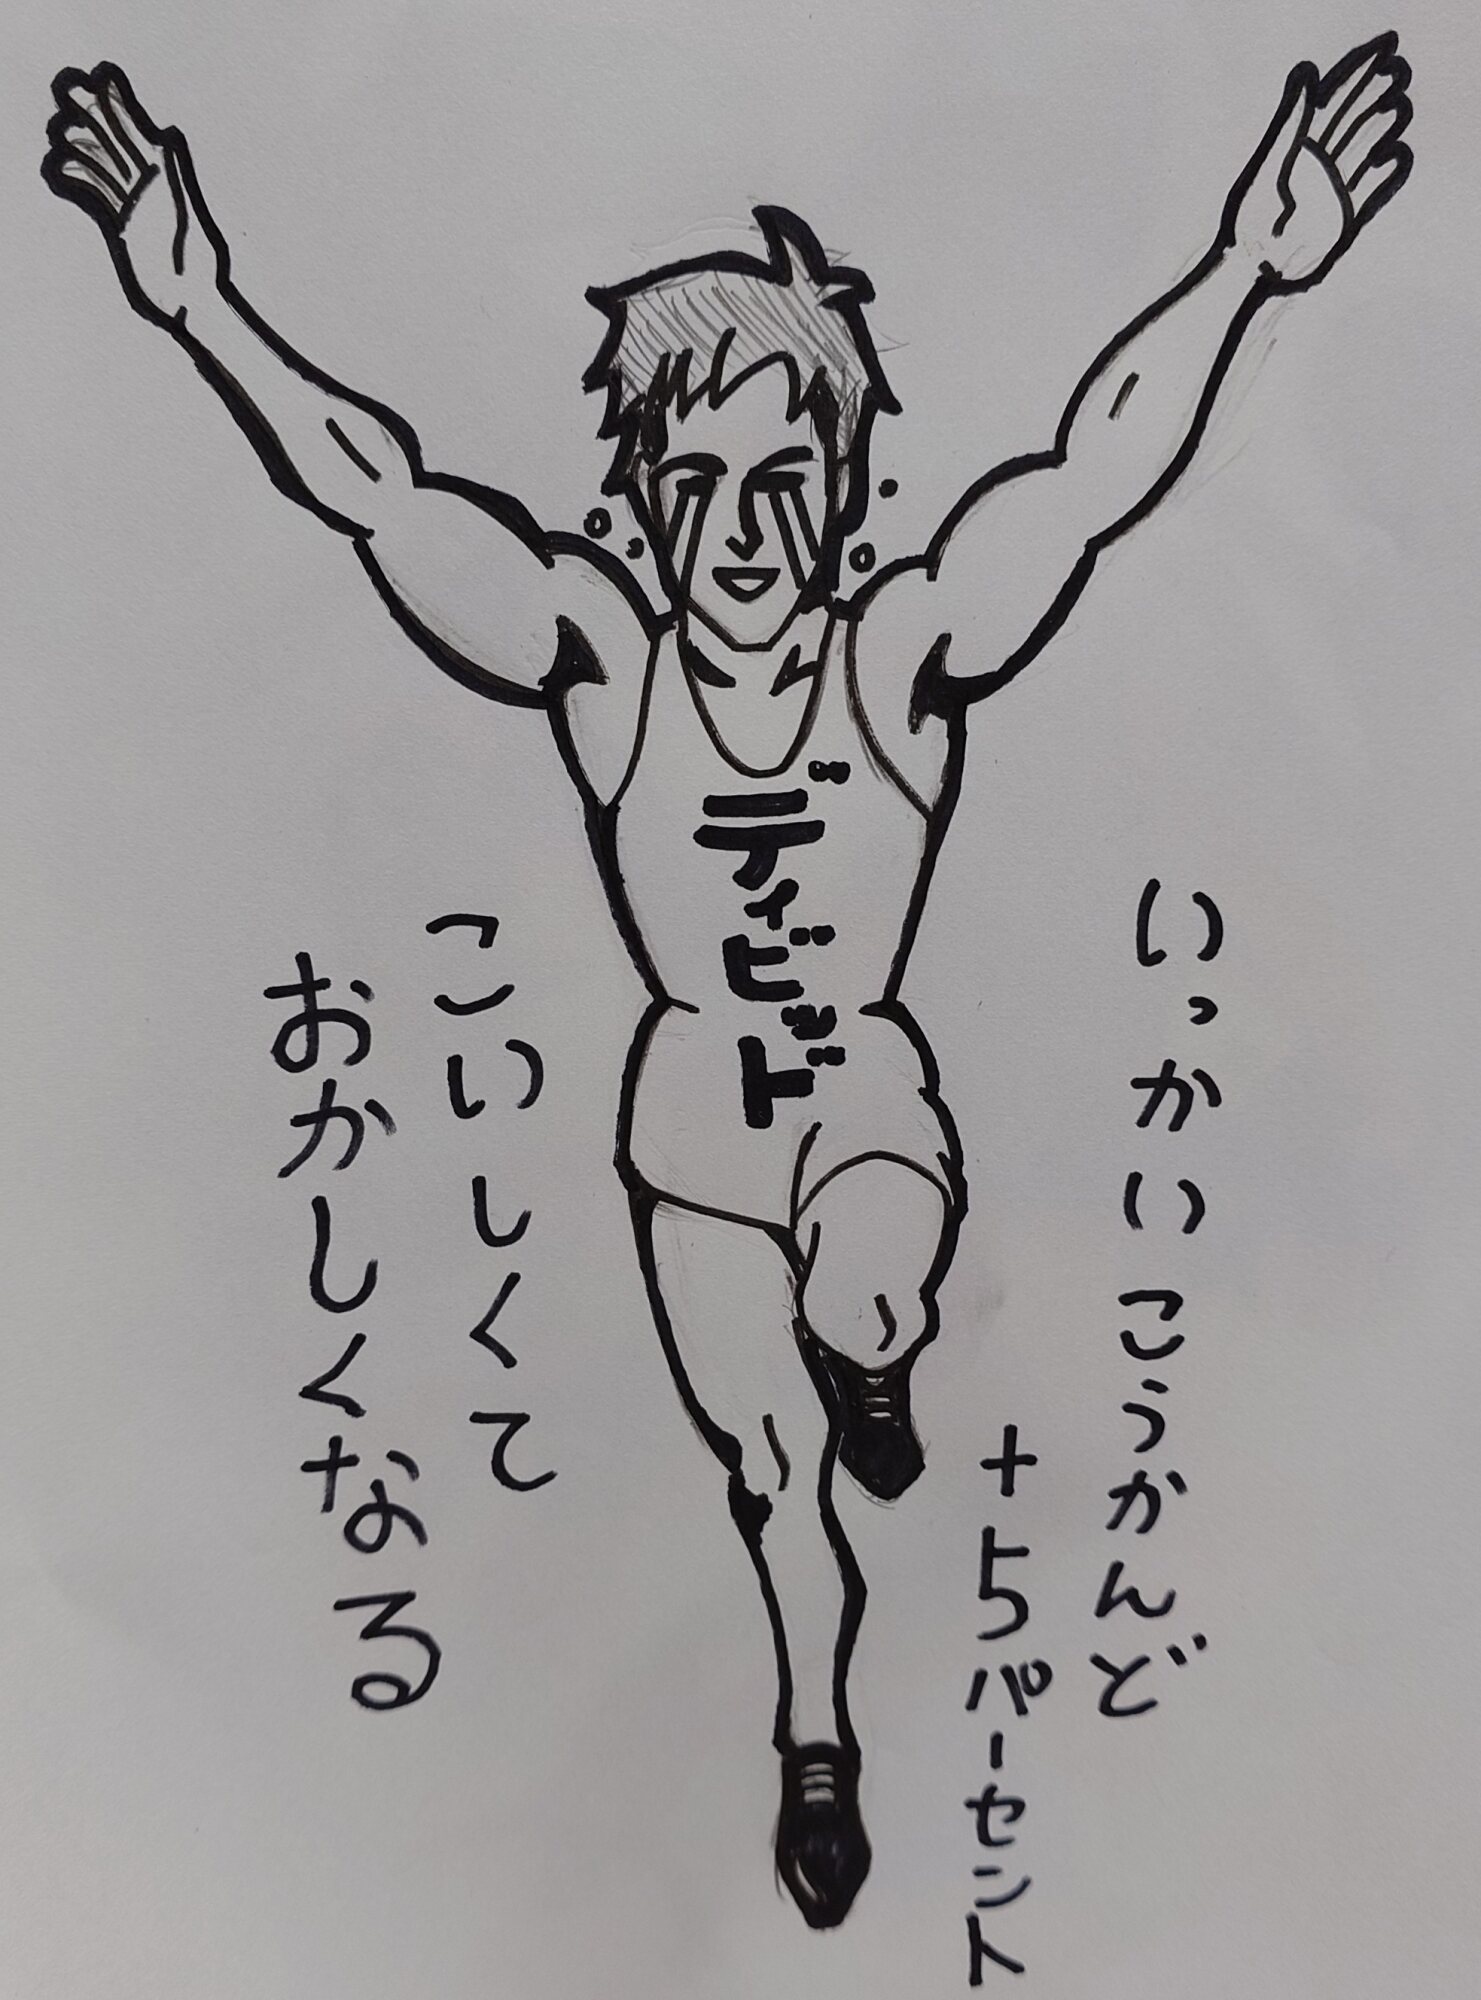 いっかいこうかんど
+5パーセント
ディビッド
こいしくて
おかしくなる